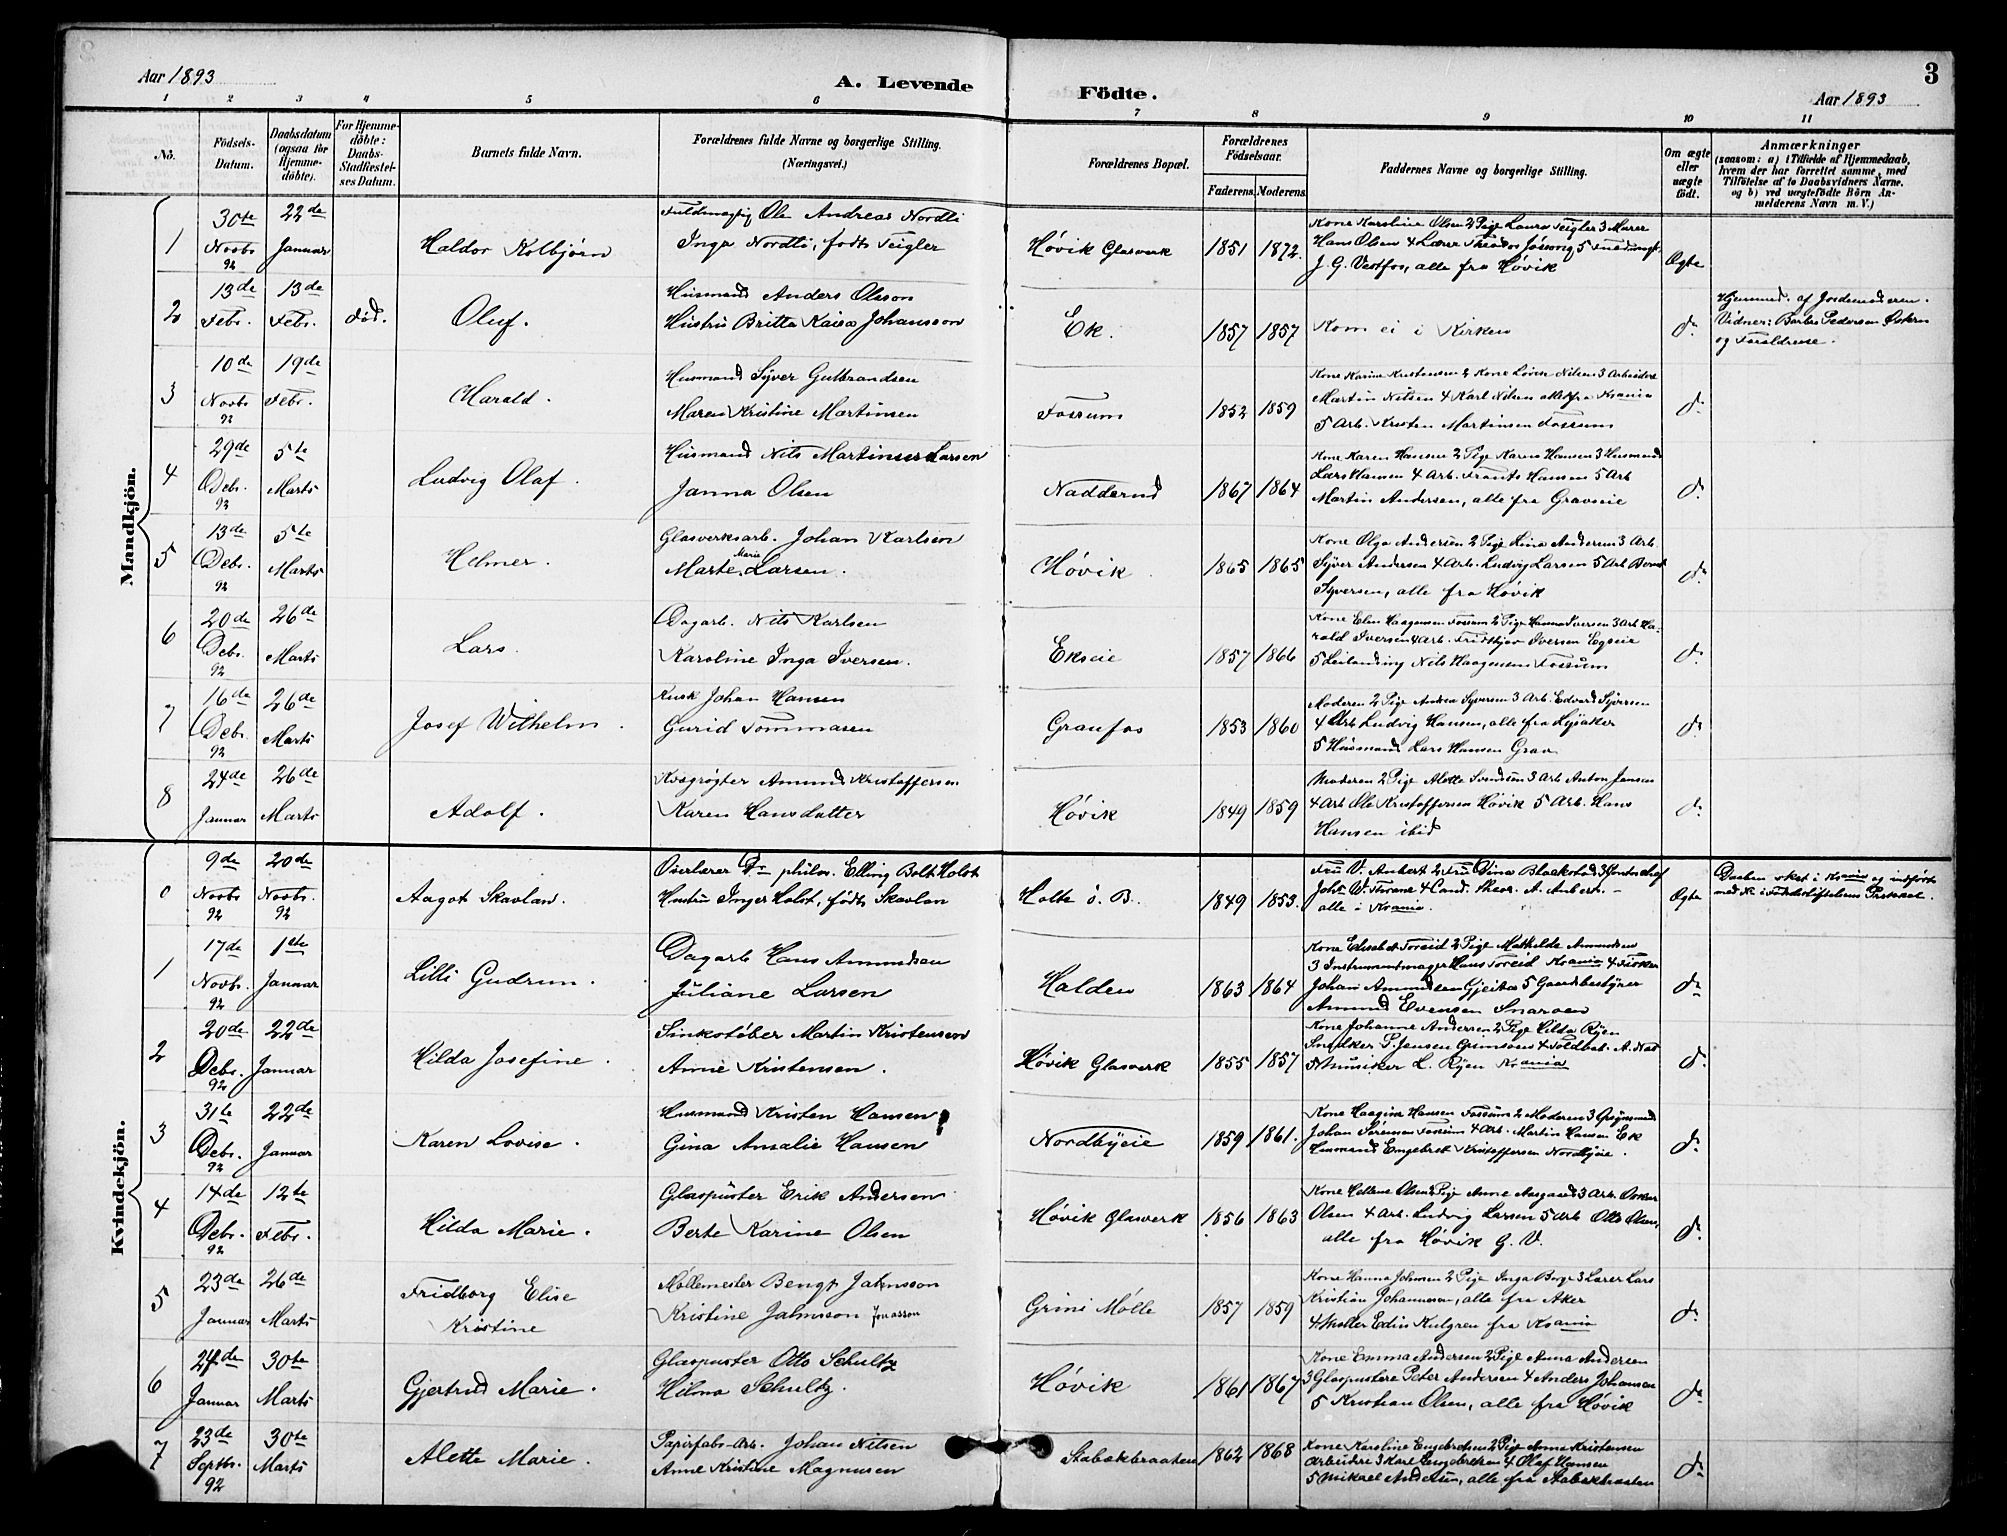 Aar 1893
A. Levende
Födte.
Aar 1893
3
1 2 3 4 5 6 7 8 9 10 11
No.
Födsels-
Datum.
Daabsdatum
(ogsaa for
Hjemme-
döbte).
For Hjemme-
döbte:
Daabs-
Stadfæstel-
ses Datum.
Barnets fulde Navn.
Forældrenes fulde Navne og borgerlige Stilling.
(Næringsvei.)
Forældrenes Bopæl.
Forældrenes
Födselsaar.
Faderens. Moderens.
Faddernes Navne og borgerlige Stilling.
Om ægte
eller
uægte
födt.
Anmærkninger
(saasom: a) i Tilfælde af Hjemmedaab,
hvem der har forrettet samme, med
Tilföielse af to Daabsvidners Navne.
og b) ved uægtefödte Börn An-
melderens Navn m. V.)
Mandkjön.
1
30te
Novbr
92
22de
Januar
Haldor Kolbjørn
Fuldmægtig Ole Andreas Nordli
Inga Nordli, født Teigler
Høvik Glasverk
1851 1872.
Kone Karoline Olsen 2 Pige Laura Teigler 3 Murer
Hans Olsen 4 Lærer 5 Fuldmægt.
J. G. Vestfos, alle fra Høvik
Ægte
2
13de
Febr.
13de
Febr.
død.
Oluf.
Husmand Anders Olsson
Hustru Britta Kaisa Johansson
Ek.
1857 1857
Kom ei i Kirken
do
Hjemmed. af Jordemoderen.
Vidner: Barbo Pedersen Østern
og Forældrene.
3
10de
Novbr
92
19de
Febr.
Harald.
Husmand Syver Gulbrandsen
Maren Kristine Martinsen
Fossum
1852 1859
Kone Karine Kristensen 2 Kone Lovise Nilsen 3 Arbeidere
Martin Nilsen 4 Karl Nilsen alle fra Krania
5 Arb. Kristen Martinsen Fossum
do
4
29de
Debr.
92
5te
Marts
Ludvig Olaf.
Husmand Nils Martinius Larsen
Janna Olsen
Nadderud
1867 1864
Kone Karen Hansen 2 Pige Karen Hansen 3 Husmand
Lars Hansen 4 Arb. Frants Hansen 5 Arb
Martin Andersen, alle fra Graveie
do
5
13de
Debr.
92
5te
Marts
Helmer.
Glasverksarb. Johan Karlsen
Marte Marie Larsen.
Høvik
1865 1865
Kone Olga Andersen 2 Pige Lina Andersen 3 Arb.
Syver Andersen 4 Arb. Ludvig Larsen 5 Arb Bernt
Syversen, alle fra Høvik
do
6
20de
Debr.
92
26de
Marts
Lars.
Dagarb. Nils Karlsen
Karoline Inga Iversen.
Ekseie
1857 1866
Kone Elen Haagensen Fossum 2 Pige Hanna Iversen 3 Arb Ha-
rald Iversen 4 Arb. Fridthjov Iversen Egseie
5 Leilænding Nils Haagensen Fossum
do
7
16de
Debr.
92
26de
Marts
Josef Wilhelm.
Kusk Johan Hansen
Gurid Tommasen
Granfos
1853 1860
Moderen 2 Pige Andrea Syversen 3 Arb. Edvard Syversen
4 Arb Ludvig Hansen, alle fra Lysaker
5 Husmand Lars Hansen Grav
do
8
24de
Januar
26de
Marts
Adolf.
Kvægrøgter Amund Kristoffersen
Karen Hansdatter
Høvik
1849 1859
Moderen 2 Pige Alette Svendsen 3 Arb Anton Jensen
4 Arb Ole Kristoffersen Høvik 5 Arb. Hans
Hansen ibid
do
Kvindekjön.
0
9de
Novbr
92
20de
Novbr.
92
Aagot Skavlan.
Overlærer Dr philos. Elling Bolt Holst
Hustru Inger Holst, født Skavlan
Holte ö. B.
1849 1853.
Fru V. Aubert 2 Fru Dina Blakstad 3 Kontorchef
Joh. V. 4 Cand. theor. A. Aubert. -
alle i Krania.
Ægte
Daaben sket i Krania og indført
1
17de
Novbr.
92
1ste
Januar
Lilli Gudrun.
Dagarb Hans Amundsen
Juliane Larsen
Halden
1863 1864
Kone Elisabet Toreid 2 Pige Mathilde Amundsen
3 Instrumentmager Hans Toreid Krania 4 Fisker
Johan Amundsen Gjeitø 5 Gaardsbestyrer
Amund Evensen Snarøen
do
2
20de
Debr.
92
22de
Januar
Hilda Josefine.
Sinkstøber Martin Kristensen
Anne Kristensen.
Høvik Glasverk
1855 1857
Kone Johanne Andersen 2 Pige Hilda Ryen
Snedker P. Jensen
5 Musiker L. Ryen Krania
do
3
31te
Debr.
92
22de
Januar
Karen Lovise.
Husmand Kristen Hansen
Gina Amalie Hansen
Nordbyeie
1859 1861.
Kone Haagine Hansen Fossum 2 Moderen 3 Opsynsmand
Johan Sørensen Fossum 4 Arb. Martin Hansen Ek
Husmand Engebret Kristoffersen Nordbyeie.
do
4
14de
Debr.
92
12te
Febr.
Hilda Marie.
Glaspuster Erik Andersen
Berte Karine Olsen
Høvik Glasverk
1856 1863
Kone Hellene Olsen 2 Pige Anne Aasgaard 3 Arb. Oskar
Olsen 4 Arb. Ludvig Larsen 5 Arb Otto Olsen,
alle fra Høvik G. V.
do
5
23de
Januar
26de
Marts
Fridborg Elise
Kristine
Møllemester Bengt Jahnsson
Kristine Jahnsson Jonasson
Grini Mølle
1857 1859
Kone Hanna Johnsen 2 Pige Inga Berge 3 Lærer Lars
Kristian Johannesen, alle fra Aker
4 Møller Edin Kulgren fra Krania
do
6
24de
Januar
30te
Marts
Gjertrud Marie.
Glaspuster Otto Schultz
Hilma Schultz.
Høvik
1861 1867
Kone Emma Andersen 2 Pige Anna Andersen
3 Glaspustere Peter Andersen 4 Anders Johansen
5 Kristian Olsen, alle fra Høvik
do
7
23de
Septbr.
92
30te
Marts
Alette Marie.
Papirfabr-Arb. Johan Nilsen
Anne Kristine Magnusen
Stabækbraaten
1862 1868
Kone Karoline Engebretsen 2 Pige Anna Kristensen
Arbeidere 3 Karl Engebretsen 4 Olaf Hansen
5 Mikael Andersen, alle fra Stabækbraaten
do